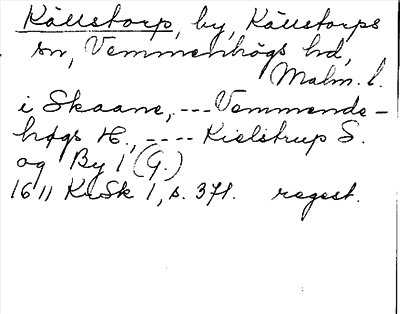 Källstorp, by, Källstorps
sn, Vemmenhögs hd,
Malm. l.
i Skaane, --- Vemmende-
høgs H., ---- Kielstrup S.
og By 1 (G.)
1611 KuSk 1, s. 371. regest.